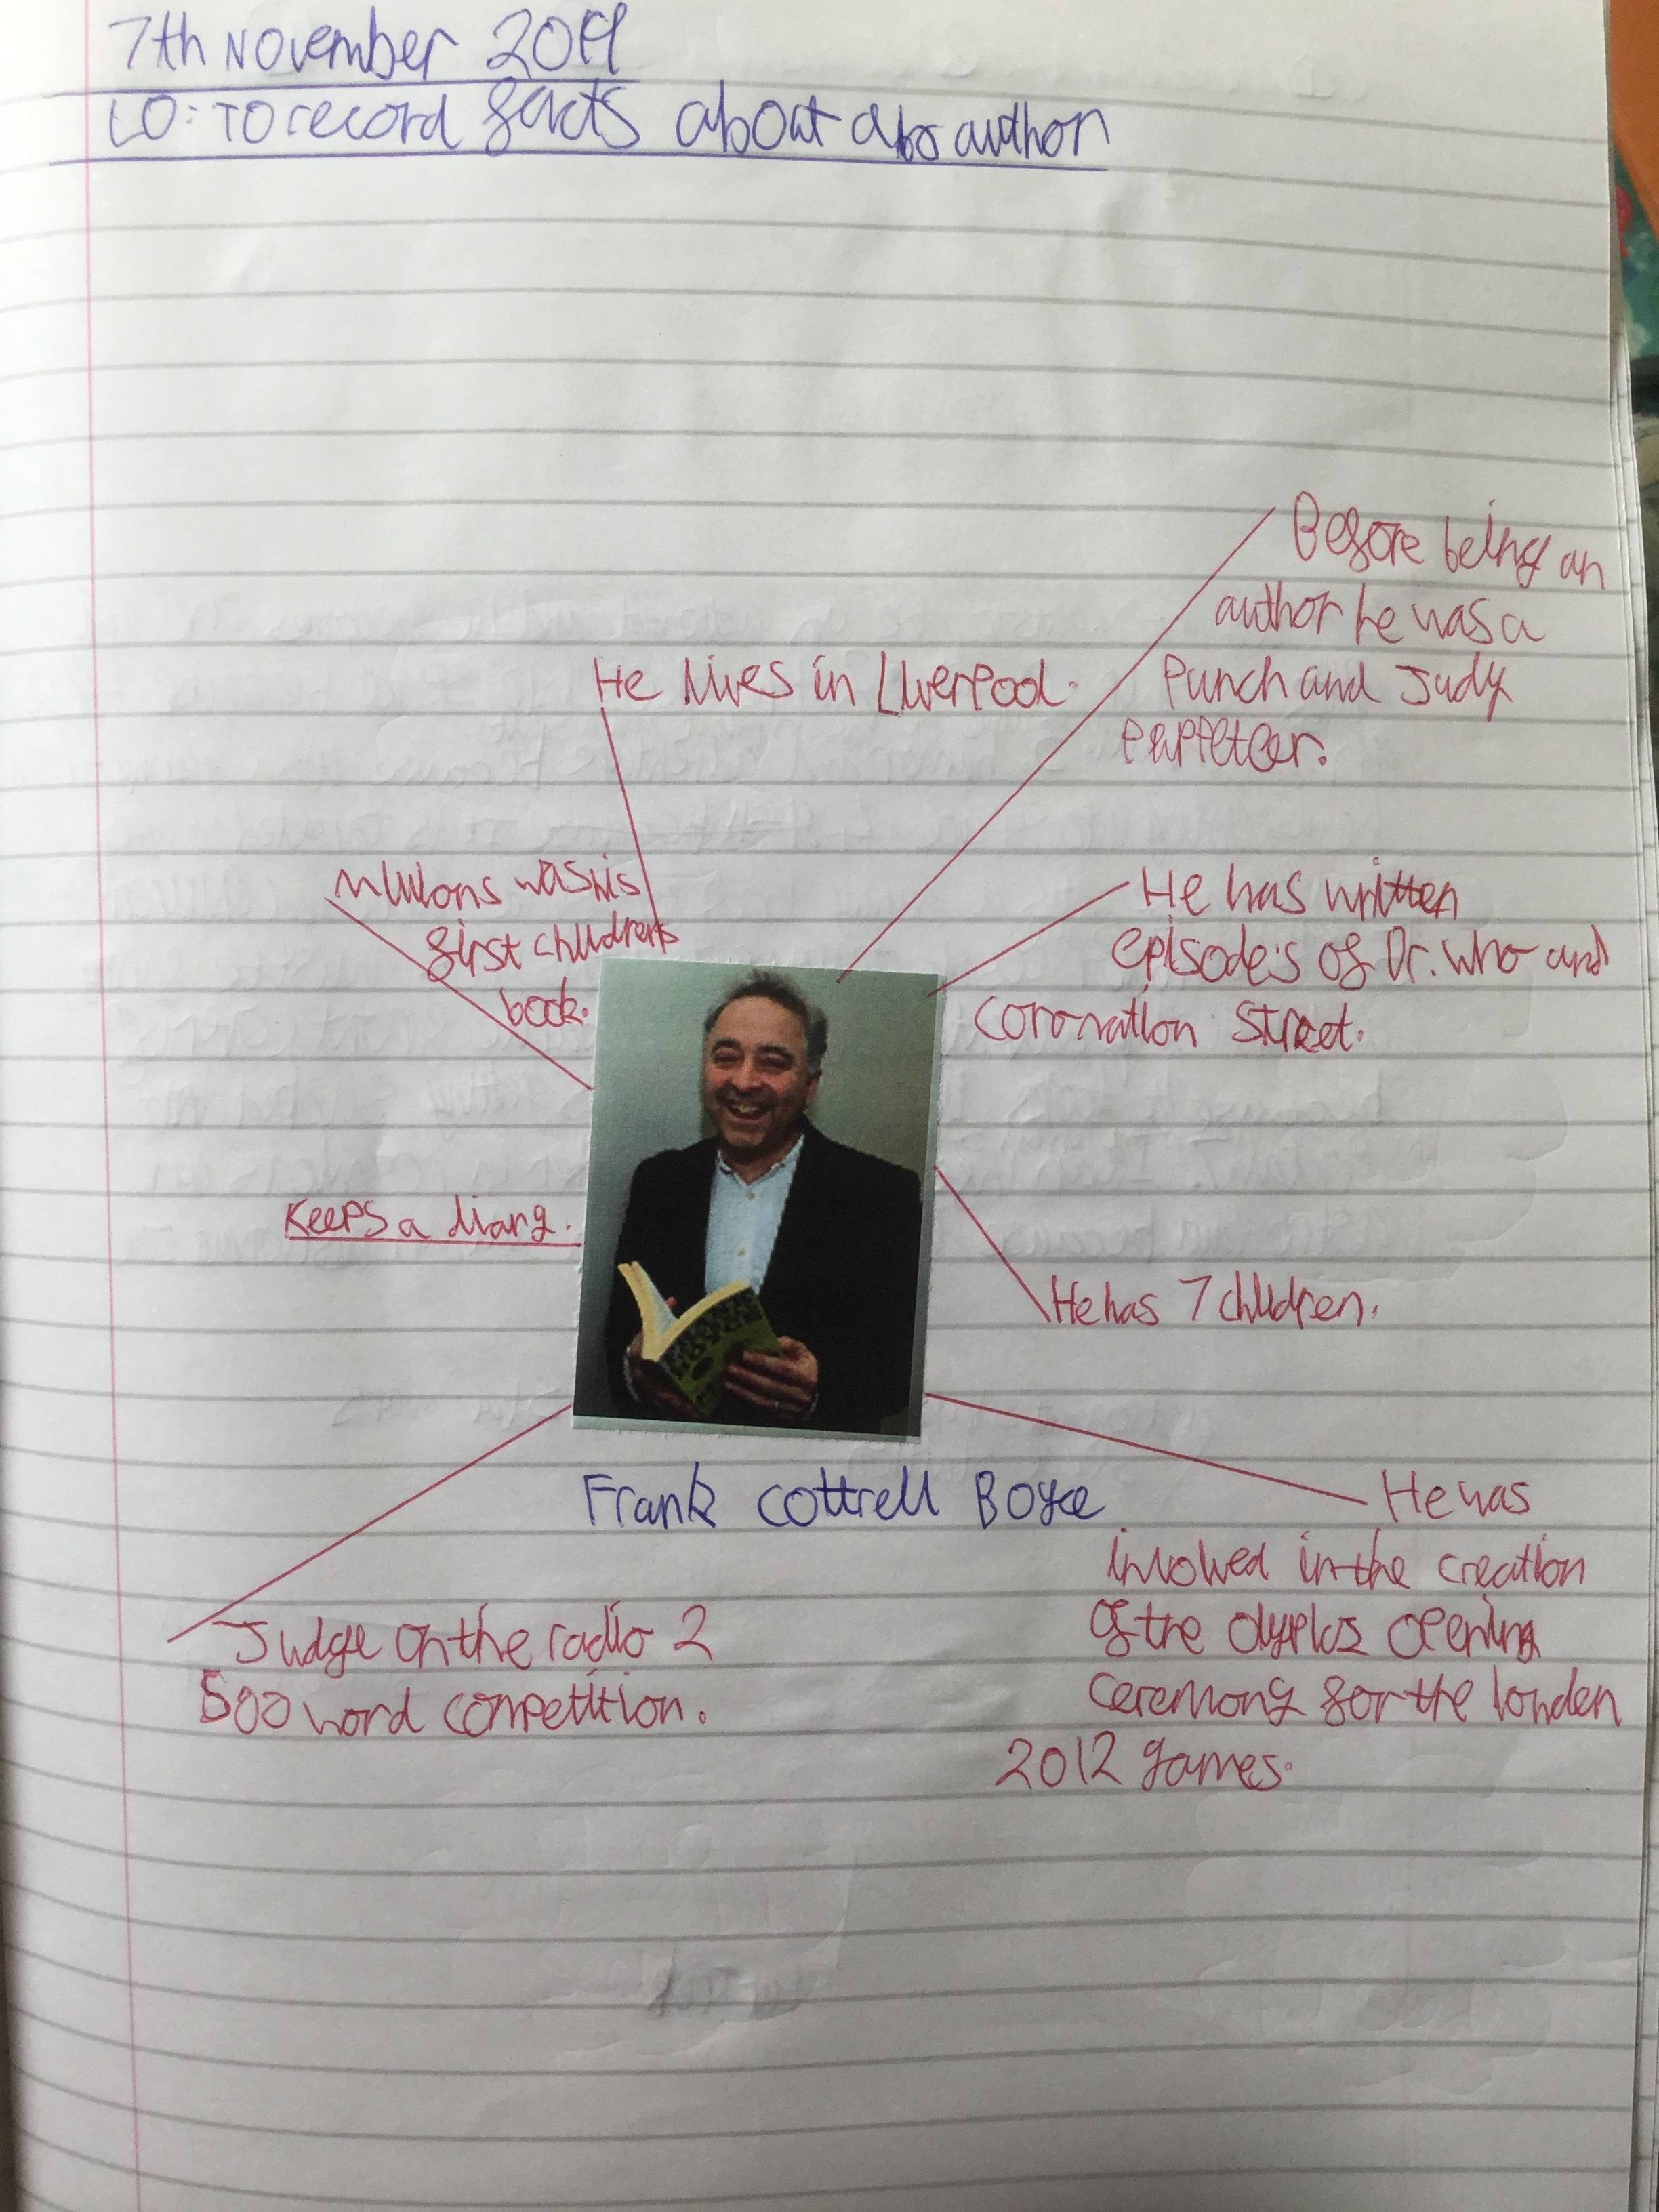 7th November 2019
LO: To record facts about an author
Before being an
author he was a
Punch and Judy
puppeteer.
He lives in Liverpool.
Millions was his
first childrens
book.
He has written
episode's of Dr. Who and
Coronation Street.
Keeps a diary.
He has 7 children.
Frank Cottrell Boyce
He was
involved in the creation
of the olympics opening
ceremony for the london
2012 games.
Judge on the radio 2
500 word competition.